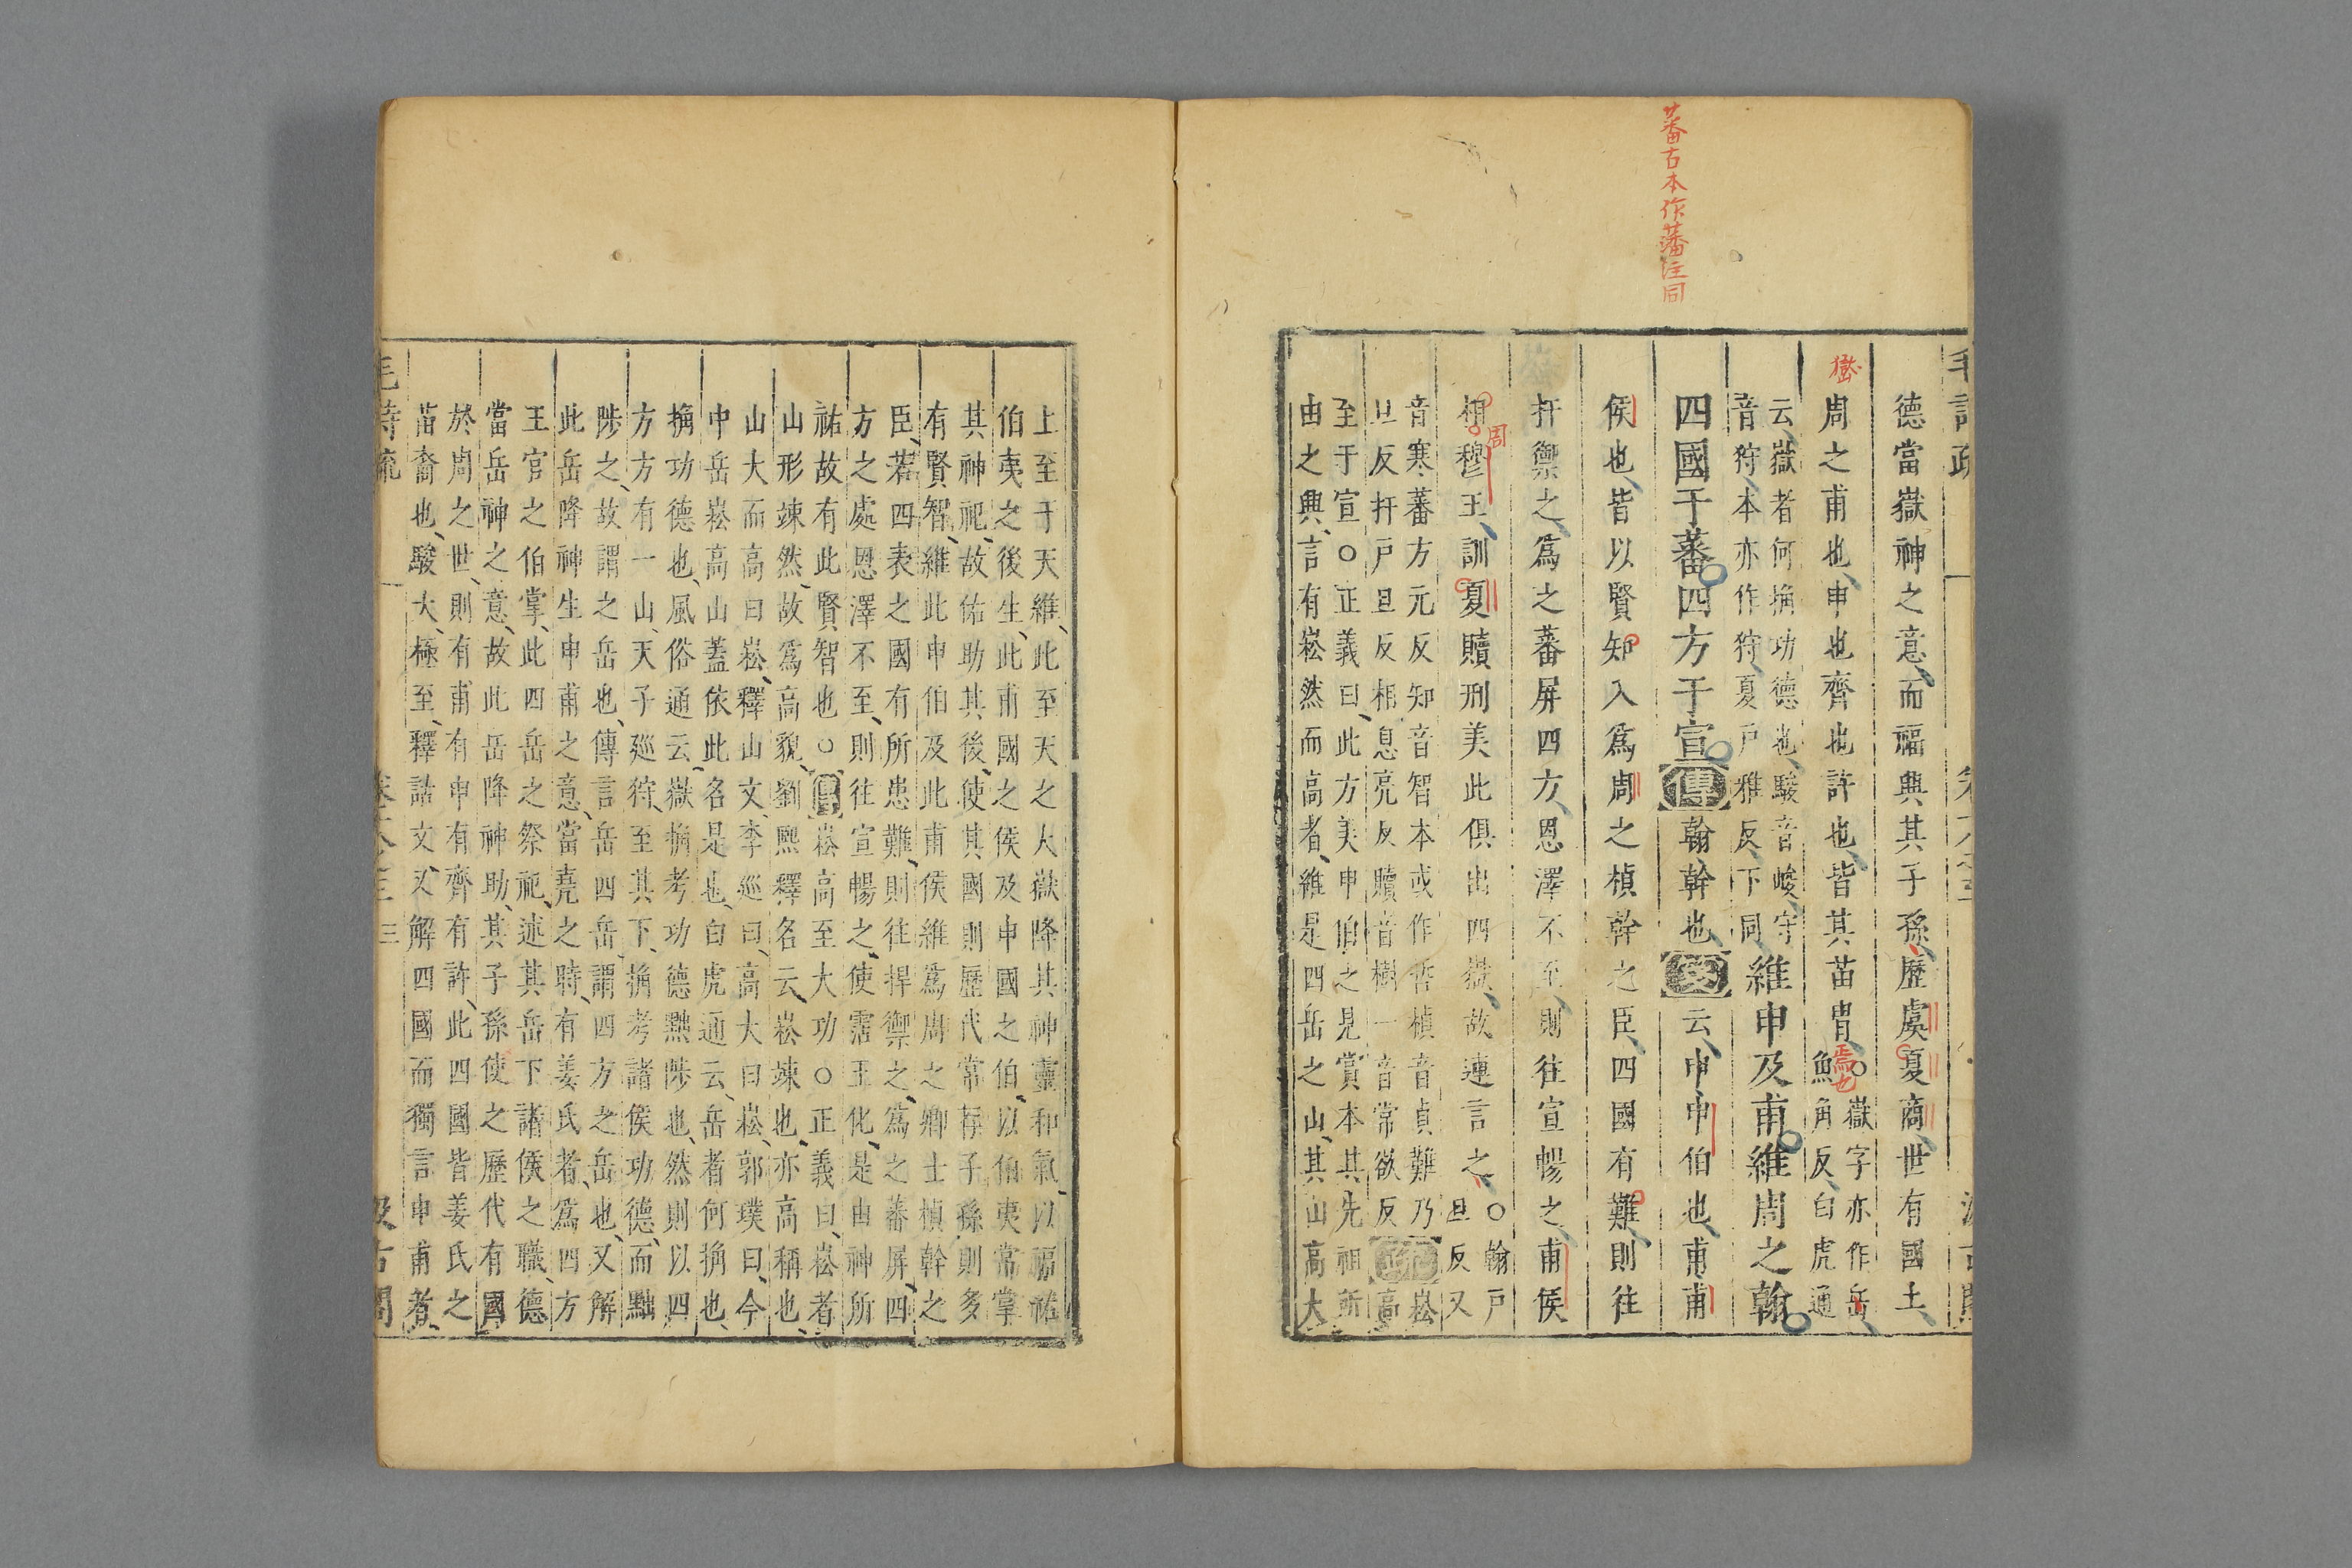 蕃古本作藩注同
德當嶽神之意、而福興其子孫、歷虞夏商、世有國土、
嶽
周之甫也、申也齊也許也、皆其苗胄、
焉也
○嶽字亦作岳、
魚角反、白虎通
云、嶽者何捔功德也、駿音峻、守
音狩、本亦作狩、夏戶雅反、下同
維申及甫維周之翰
四國于蕃四方于宣傳翰、幹也、箋云、申、申伯也、甫、甫
侯也、皆以賢知入爲周之楨幹之臣、四國有難、則往
扞禦之、爲之蕃屏四方、恩澤不至、則往宣暢之、甫侯
相穆王、訓夏贖刑美此俱出四嶽、故連言之、
周
○翰戶
旦反又
音寒蕃方元反知音智本或作哲楨音貞難乃
旦反扞戶旦反相息亮反贖音樹一音常欲反
疏
崧
高
至于宣○正義曰、此方美申伯之見賞本其先祖所
由之興、言有崧然而高者、維是四岳之山、其山高大
上至于天維、此至天之大嶽降其神靈和氣、以福祐
伯夷之後生、此甫國之侯及申國之伯、以伯夷常掌
其神祀、故佑助其後、使其國則歷代常存子孫則多
有賢智、維此申伯及此甫侯維爲周之卿士楨幹之
臣、若四表之國有所患難、則往捍禦之、爲之蕃屏、四
方之處恩澤不至、則往宣暢之、使霑王化、是由神所
祐故有此賢智也○傳崧高至大功○正義曰、崧者
山形竦然、故爲高貌、劉熙釋名云、崧竦也、亦高稱也、
山大而高曰崧、釋山文、李巡曰、高大曰崧、郭璞曰、今
中岳崧高山蓋依此名是也、白虎通云、岳者何捔也、
捔功德也、風俗通云、嶽捔考功德黜陟也、然則以四
方方有一山、天子巡狩、至其下、捔考諸侯功德、而黜
陟之、故謂之岳也、傳言岳四岳、謂四方之岳也、又解
此岳降神生申甫之意、當堯之時、有姜氏者、爲四方
王官之伯掌、此四岳之祭祀、述其岳下諸侯之職、德
當岳神之意、故此岳降神助、其子孫使之歷代有國
於周之世、則有甫有申有齊有許、此四國皆姜氏之
苗裔也、駿大、極至、釋詁文、又解四國而獨言申甫者、
毛詩疏
三